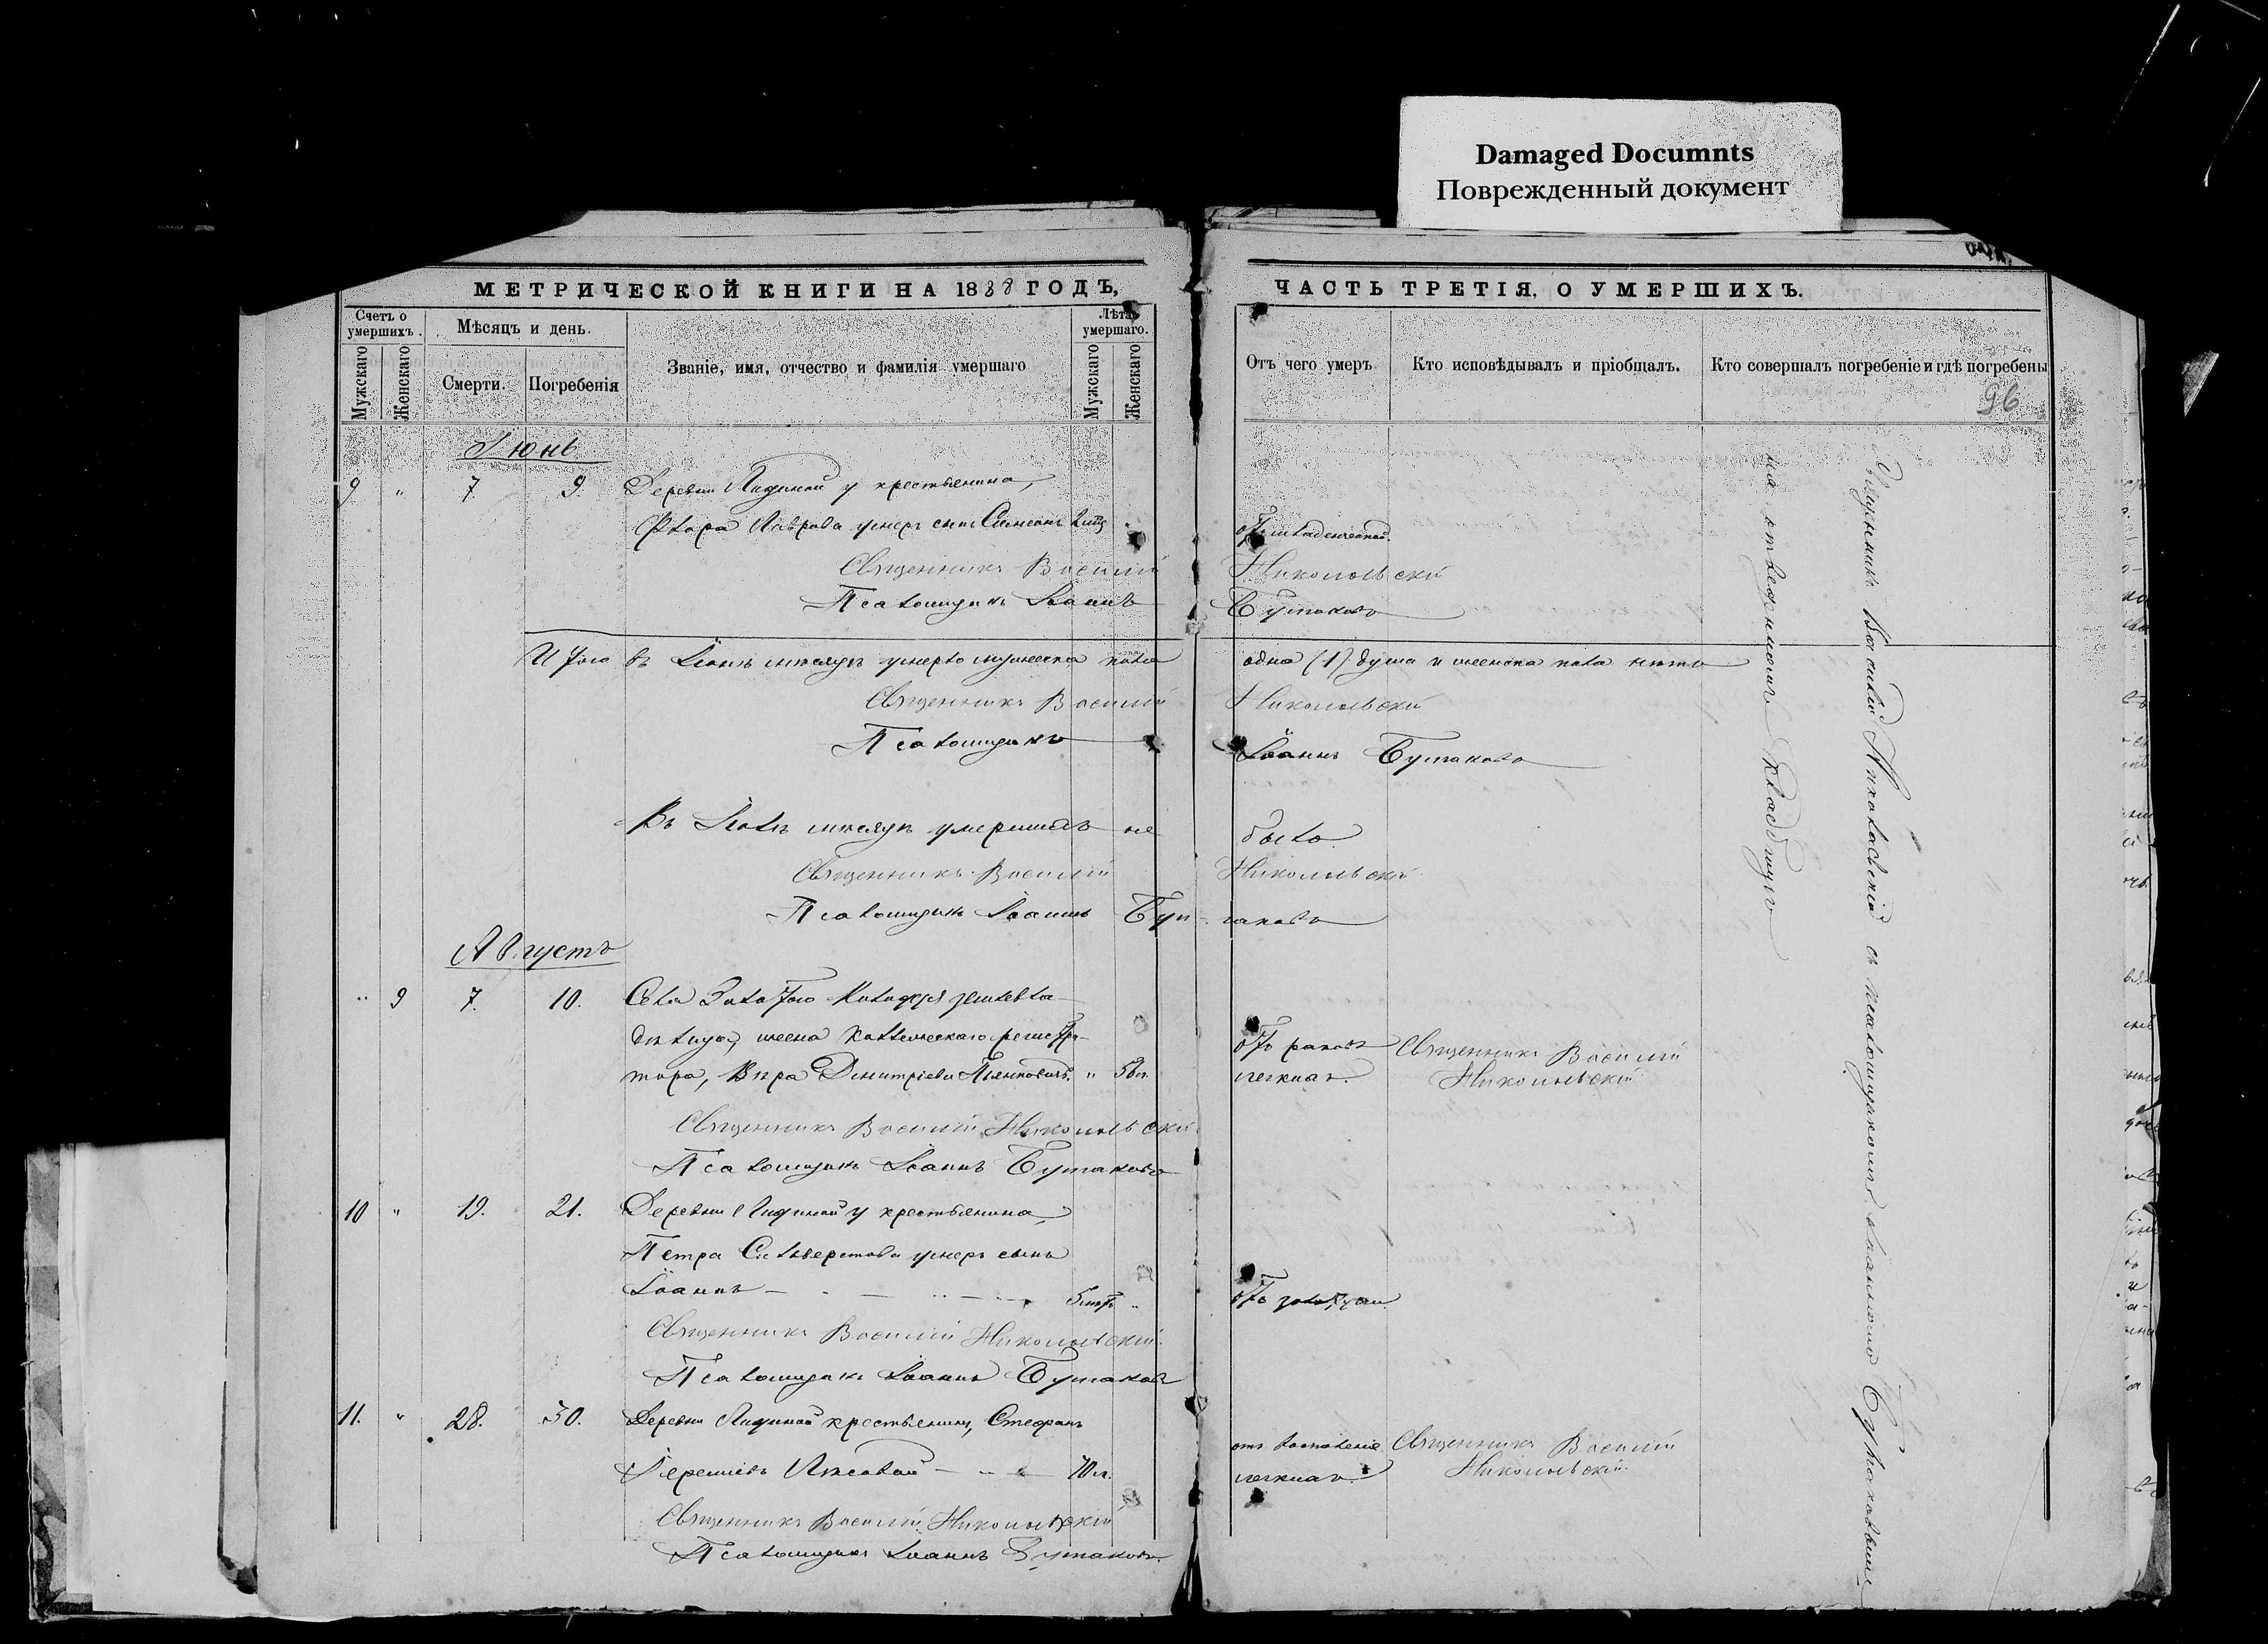 Damaged Documnts
Поврежденный документ
МЕТРИЧЕСКОЙ КНИГИ НА 1888 ГОДЪ,
Счетъ о умершихъ.
Мужскаго
Женскаго
Мѣсяцъ и день.
Смерти.
Погребенія
Званіе, имя, отчество и фамилія умершаго
Лѣта умершаго.
Мужскаго
Женскаго
Іюнь
9 " 7 9. Деревни Лядиной у крестьянина,
Флора Лаврова умеръ сынъ Симеонъ
Священникъ Василій
Псаломщикъ Іоаннъ
Итого въ Іюнѣ мѣсяцѣ умерло мужеска пола
Священникъ Василій
Псаломщикъ
Въ Іюлѣ мѣсяцѣ умершихъ не
Священникъ Василій
Псаломщикъ Іоаннъ Бут-
Августъ
" 9 7. 10. Села землевла-
дѣлица, жена Коллежскаго регистра-
тора, Вѣра Димитріева " 58 л.
Священникъ Василій Никольскій
Псаломщикъ Іоаннъ Бутаковъ
10 " 19. 21. Деревни Лядиной у крестьянина,
Петра Сильверстова умеръ сынъ
Іоаннъ "
Священникъ Василій Никольскій
Псаломщикъ Іоаннъ Бутаковъ
11. " 28. 30. Деревни Лядиной крестьянинъ, Стефанъ
70 л.
Священникъ Василій Никольскій
Псаломщикъ Іоаннъ Бутаковъ
ЧАСТЬ ТРЕТІЯ, О УМЕРШИХЪ.
Отъ чего умеръ
Кто исповѣдывалъ и пріобщалъ.
Кто совершалъ погребеніе и гдѣ погребены
96
отъ младенческой.
Никольскій
Бутаковъ
одна (1) душа и женска пола нѣтъ
Никольскій
Іоаннъ Бутаковъ
было.
Никольскій
таковъ
отъ Священникъ Василій
легкихъ. Никольскій
отъ
отъ воспаленія Священникъ Василій
легкихъ Никольскій
Священникъ Василій Никольскій съ псаломщикомъ Іоанномъ Бутаковымъ
на кладбищѣ